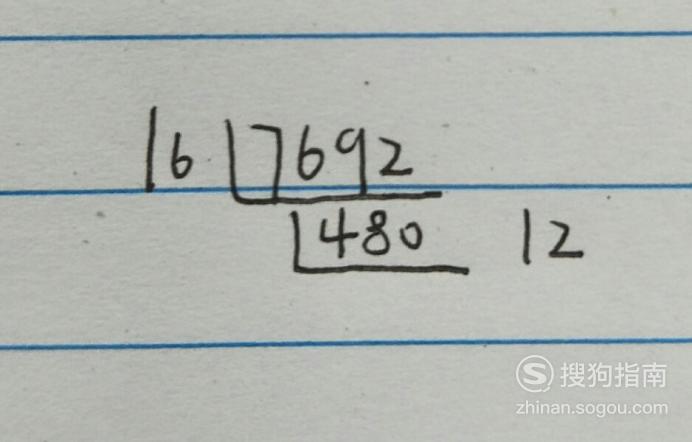 16 7692
480 12
搜狗指南
zhinan.sogou.com